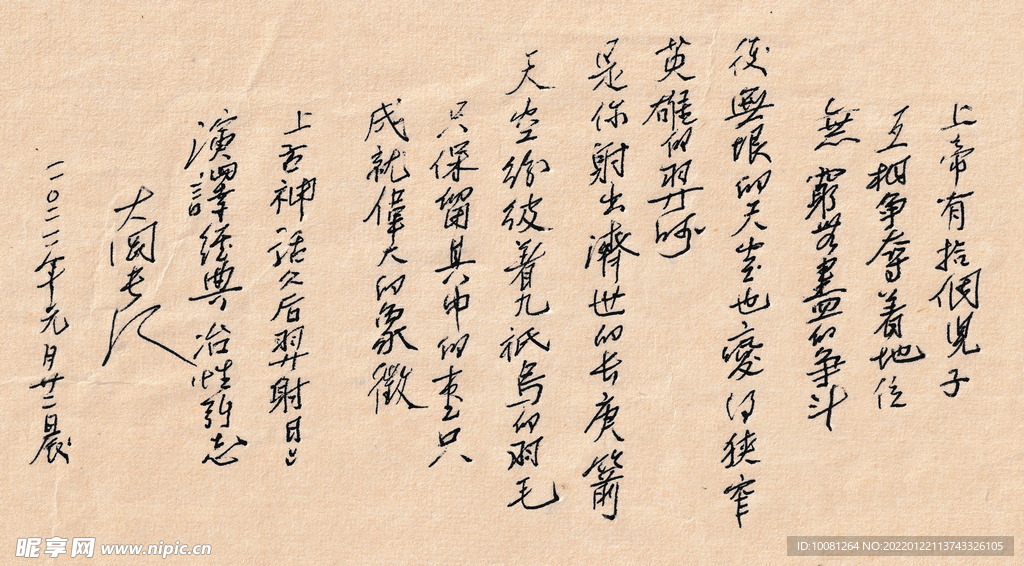 上帝有拾個児子
互相争夺着地位
無窮无盡的争斗
使無垠的天空也變得狭窄
英雄的羿呀
是你射出濟世的长庚箭
天空纷纷 着九祇鸟的羽毛
只保留其中的壹只
成就偉大的象徵
上古神话之后羿射日
演譯經典 冶性 志
大國长江
二〇二二年元月廿二日晨
昵享网 www.nipic.cn
ID:10081264 NO:20220122113743326105